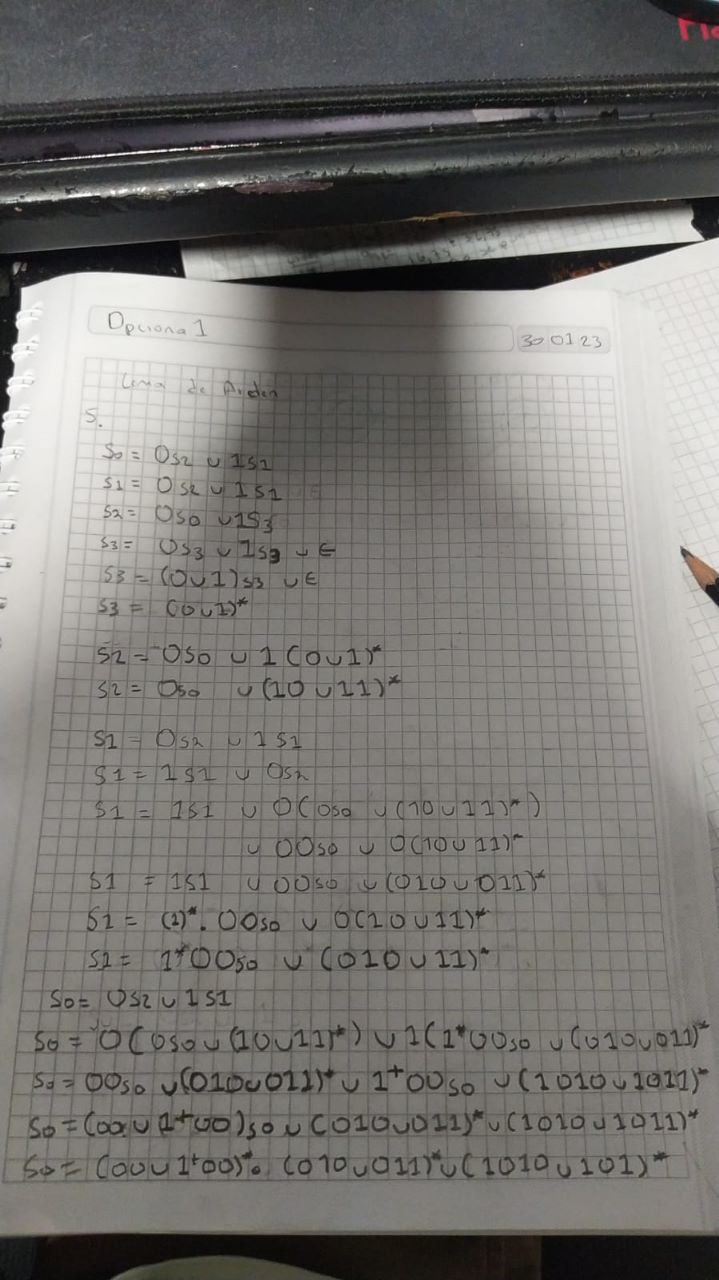 Opcional
30 01 23
Lema de Arden
5.
S0 = 0S2 ∪ 1S1
S1 = 0S2 ∪ 1S1
S2 = 0S0 ∪ 1S3
S3 = 0S3 ∪ 1S3 ∪ ∈
S3 = (0∪1)S3 ∪ ∈
S3 = (0∪1)*
S2 = 0S0 ∪ 1(0∪1)*
S2 = 0S0 ∪ (10∪11)*
S1 = 0S2 ∪ 1S1
S1 = 1S1 ∪ 0S2
S1 = 1S1 ∪ 0(0S0 ∪ (10∪11)*)
∪ 00S0 ∪ 0(10∪11)*
S1 = 1S1 ∪ 00S0 ∪ (010∪011)*
S1 = (1)*. 00S0 ∪ 0(10∪11)*
S1 = 1*00S0 ∪ (010∪11)*
S0 = 0S2 ∪ 1S1
S0 = 0(0S0∪(10∪11)*) ∪ 1(1*00S0 ∪(010∪011)*
S0 = 00S0 ∪(010∪011)* ∪ 1+00S0 ∪(1010∪1011)*
S0 = (00∪1+00)S0 ∪ (010∪011)*∪(1010∪1011)*
S0 = (00∪1+00)*. (010∪011)*∪(1010∪101)*